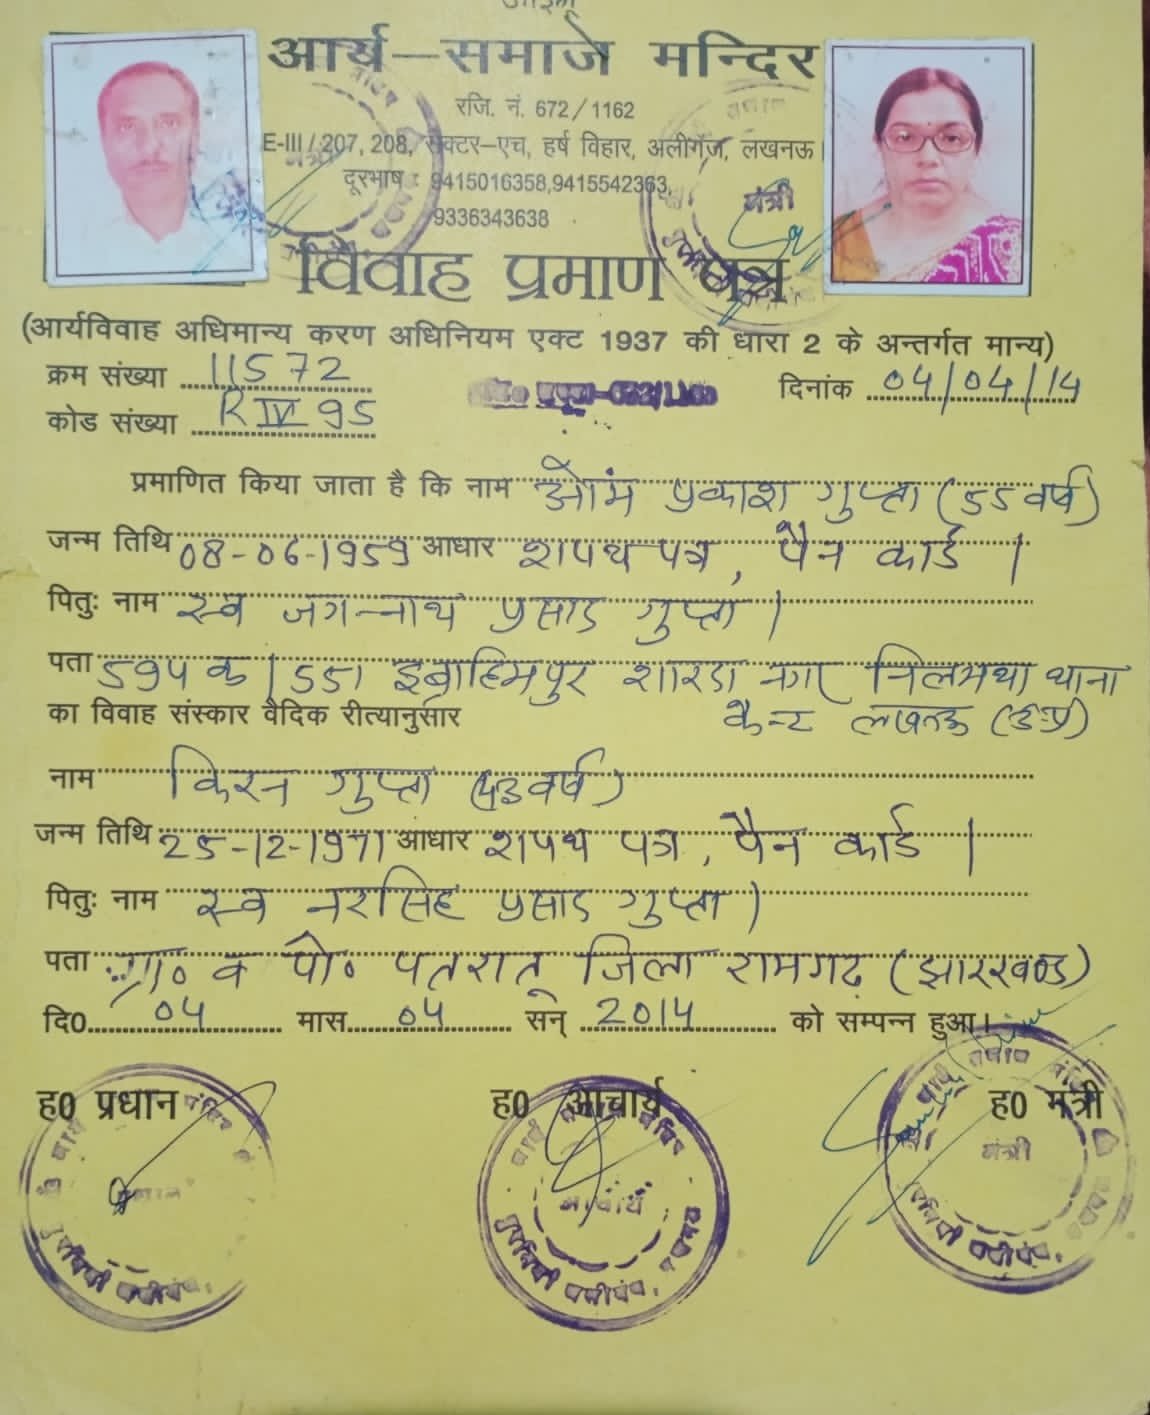 आर्य–समाज मन्दिर
रजि. नं. 672 / 1162
E-III / 207, 208, सेक्टर–एच, हर्ष विहार, अलीगंज, लखनऊ
दूरभाष : 9415016358,9415542363,
9336343638
विवाह प्रमाण पत्र
(आर्यविवाह अधिमान्य करण अधिनियम एक्ट 1937 की धारा 2 के अन्तर्गत मान्य)
क्रम संख्या 11572
दिनांक 04/04/14
कोड संख्या R IV 95
प्रमाणित किया जाता है कि नाम ओम प्रकाश गुप्ता (55 वर्ष)
जन्म तिथि 08-06-1959 आधार शपथ पत्र, पैन कार्ड |
पितुः नाम स्व जगन्नाथ प्रसाद गुप्ता |
पता 594 क / 551 इब्राहिमपुर शारदा नगर निलमथा थाना
का विवाह संस्कार वैदिक रीत्यानुसार कैन्ट लखनऊ (उ.प्र)
नाम किरन गुप्ता (43 वर्ष)
जन्म तिथि 25-12-1971 आधार शपथ पत्र, पैन कार्ड |
पितुः नाम स्व नरसिंह प्रसाद गुप्ता |
पता ग्रा० व पो० पतरातू जिला रामगढ़ (झारखण्ड)
दि0 04 मास 04 सन् 2014 को सम्पन्न हुआ।
ह0 प्रधान
ह0 आचार्य
ह0 मंत्री
मंत्री
मंत्री